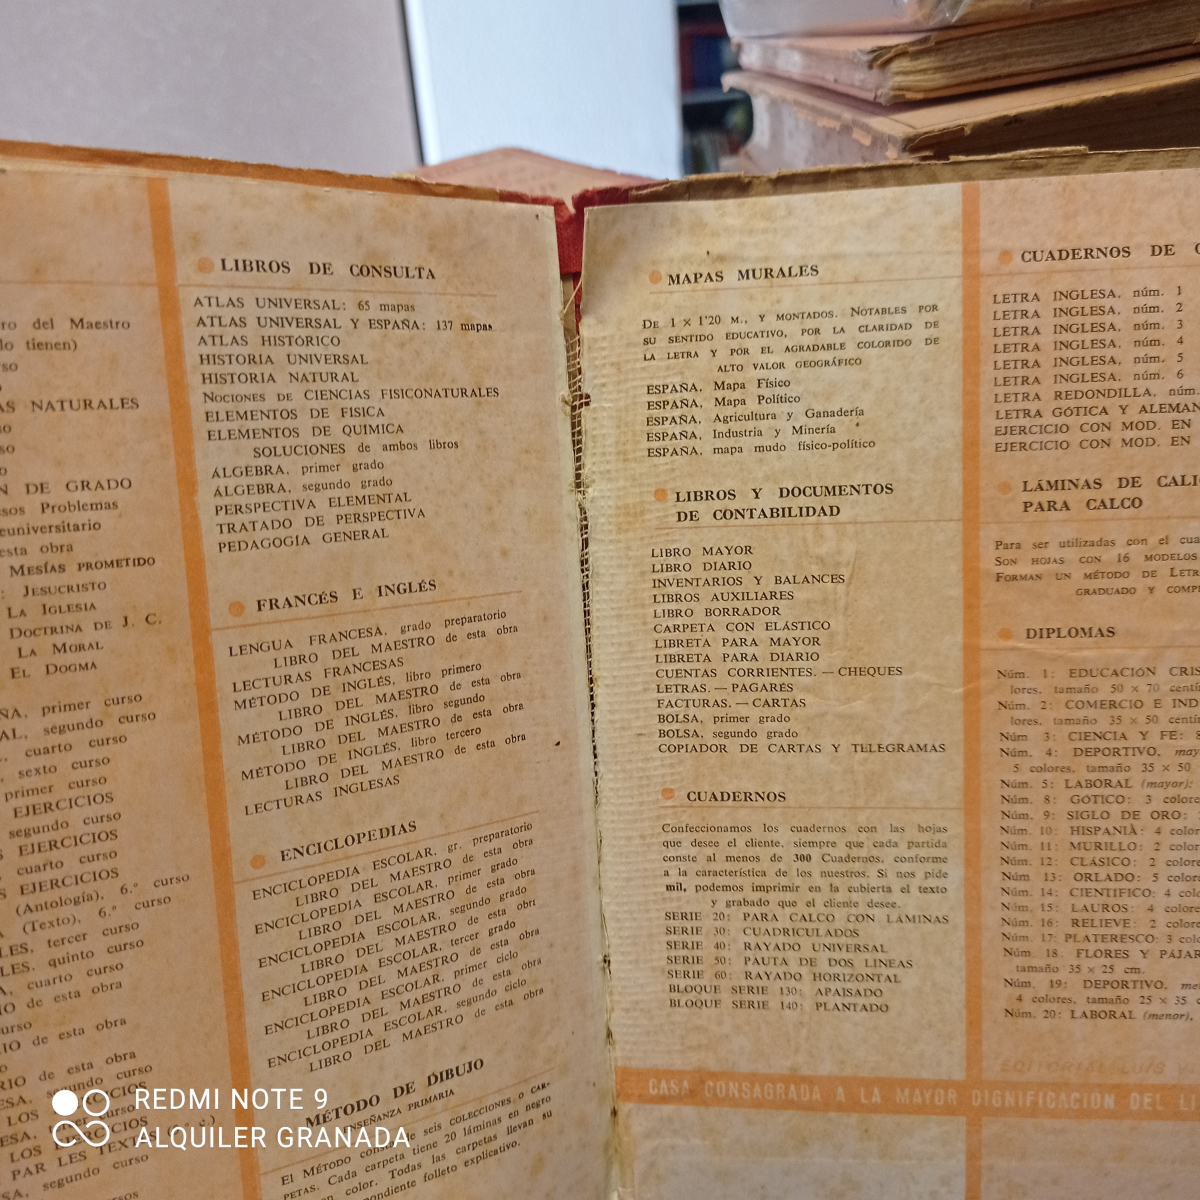 ro del Maestro
lo tienen)
NATURALES
DE GRADO
sos Problemas
euniversitario
esta obra
MESÍAS PROMETIDO
: JESUCRISTO
LA IGLESIA
DOCTRINA DE J. C.
LA MORAL
EL DOGMA
primer curso
segundo curso
cuarto curso
sexto curso
primer curso
EJERCICIOS
segundo curso
EJERCICIOS
cuarto curso
EJERCICIOS
(Antología), 6.º curso
(Texto), 6.º curso
tercer curso
quinto curso
cuarto curso
de esta obra
de esta obra
de esta obra
segundo curso
LOS EJERCICIOS
LOS EJERCICIOS
PAR LES TEXTES
segundo curso
LIBROS DE CONSULTA
ATLAS UNIVERSAL: 65 mapas
ATLAS UNIVERSAL Y ESPAÑA: 137 mapas
ATLAS HISTÓRICO
HISTORIA UNIVERSAL
HISTORIA NATURAL
NOCIONES DE CIENCIAS FISICONATURALES
ELEMENTOS DE FISICA
ELEMENTOS DE QUIMICA
SOLUCIONES de ambos libros
ÁLGEBRA, primer grado
ÁLGEBRA, segundo grado
PERSPECTIVA ELEMENTAL
TRATADO DE PERSPECTIVA
PEDAGOGÍA GENERAL
FRANCÉS E INGLÉS
LENGUA FRANCESA, grado preparatorio
LIBRO DEL MAESTRO de esta obra
LECTURAS FRANCESAS
MÉTODO DE INGLÉS, libro primero
LIBRO DEL MAESTRO de esta obra
MÉTODO DE INGLÉS, libro segundo
LIBRO DEL MAESTRO de esta obra
MÉTODO DE INGLÉS, libro tercero
LIBRO DEL MAESTRO de esta obra
LECTURAS INGLESAS
ENCICLOPEDIAS
ENCICLOPEDIA ESCOLAR, gr. preparatorio
LIBRO DEL MAESTRO de esta obra
ENCICLOPEDIA ESCOLAR, primer grado
LIBRO DEL MAESTRO de esta obra
ENCICLOPEDIA ESCOLAR, segundo grado
LIBRO DEL MAESTRO de esta obra
ENCICLOPEDIA ESCOLAR, tercer grado
LIBRO DEL MAESTRO de esta obra
ENCICLOPEDIA ESCOLAR, primer ciclo
LIBRO DEL MAESTRO de esta obra
ENCICLOPEDIA ESCOLAR, segundo ciclo
LIBRO DEL MAESTRO de esta obra
MÉTODO DE DIBUJO
ENSEÑANZA PRIMARIA
El MÉTODO consta de seis COLECCIONES O CAR-
PETAS. Cada carpeta tiene 20 láminas en negro
en color. Todas las carpetas llevan su
pondiente folleto explicativo.
MAPAS MURALES
DE 1 × 1'20 M., Y MONTADOS. NOTABLES POR
SU SENTIDO EDUCATIVO, POR LA CLARIDAD DE
LA LETRA Y POR EL AGRADABLE COLORIDO DE
ALTO VALOR GEOGRÁFICO
ESPAÑA, Mapa Físico
ESPAÑA, Mapa Político
ESPAÑA, Agricultura y Ganadería
ESPAÑA, Industria y Minería
ESPAÑA, mapa mudo físico-político
LIBROS Y DOCUMENTOS
DE CONTABILIDAD
LIBRO MAYOR
LIBRO DIARIO
INVENTARIOS Y BALANCES
LIBROS AUXILIARES
LIBRO BORRADOR
CARPETA CON ELÁSTICO
LIBRETA PARA MAYOR
LIBRETA PARA DIARIO
CUENTAS CORRIENTES. — CHEQUES
LETRAS. — PAGARÉS
FACTURAS. — CARTAS
BOLSA, primer grado
BOLSA, segundo grado
COPIADOR DE CARTAS Y TELEGRAMAS
CUADERNOS
Confeccionamos los cuadernos con las hojas
que desee el cliente, siempre que cada partida
conste al menos de 300 Cuadernos, conforme
a la característica de los nuestros. Si nos pide
mil, podemos imprimir en la cubierta el texto
y grabado que el cliente desee.
SERIE 20: PARA CALCO CON LÁMINAS
SERIE 30: CUADRICULADOS
SERIE 40: RAYADO UNIVERSAL
SERIE 50: PAUTA DE DOS LINEAS
SERIE 60: RAYADO HORIZONTAL
BLOQUE SERIE 130: APAISADO
BLOQUE SERIE 140: PLANTADO
CUADERNOS DE
LETRA INGLESA, núm. 1
LETRA INGLESA, núm. 2
LETRA INGLESA, núm. 3
LETRA INGLESA, núm. 4
LETRA INGLESA, núm. 5
LETRA INGLESA, núm. 6
LETRA REDONDILLA, núm.
LETRA GÓTICA Y ALEMAN
EJERCICIO CON MOD. EN
EJERCICIO CON MOD. EN
LÁMINAS DE CALI
PARA CALCO
Para ser utilizadas con el cua
SON HOJAS CON 16 MODELOS
FORMAN UN MÉTODO DE LETR
GRADUADO Y COMP
DIPLOMAS
Núm. 1: EDUCACIÓN CRIS
lores, tamaño 50 × 70 centí
Núm. 2: COMERCIO E IND
lores, tamaño 35 × 50 centí
Núm. 3: CIENCIA Y FE: 8
Núm. 4: DEPORTIVO, may
5 colores, tamaño 35 × 50
Núm. 5: LABORAL (mayor):
Núm. 8: GÓTICO: 3 colore
Núm. 9: SIGLO DE ORO:
Núm. 10: HISPANIA: 4 color
Núm. 11: MURILLO: 2 color
Núm. 12: CLÁSICO: 2 colore
Núm. 13: ORLADO: 5 colore
Núm. 14: CIENTIFICO: 4 colo
Núm. 15: LAUROS: 4 colores
Núm. 16: RELIEVE: 2 colore
Núm. 17: PLATERESCO: 3 colo
Núm. 18. FLORES Y PÁJAR
tamaño 35 × 25 cm.
Núm. 19: DEPORTIVO, me
4 colores, tamaño 25 × 35 c
Núm. 20: LABORAL (menor),
EDITORIAL LUIS VI
CASA CONSAGRADA A LA MAYOR DIGNIFICACIÓN DEL LI
REDMI NOTE 9
ALQUILER GRANADA